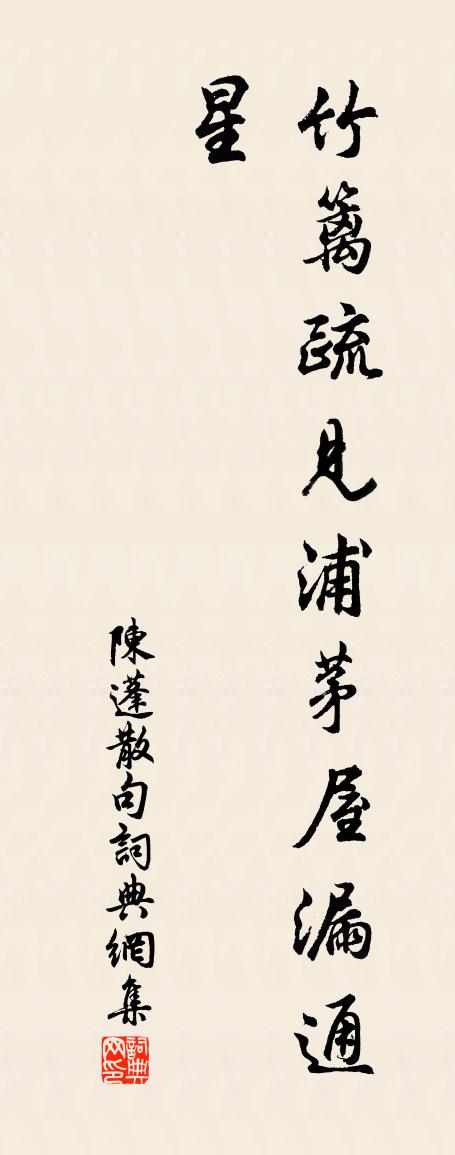 竹籬疏見浦茅屋漏通
星
陳蓬散句詞典網集
詞典网印